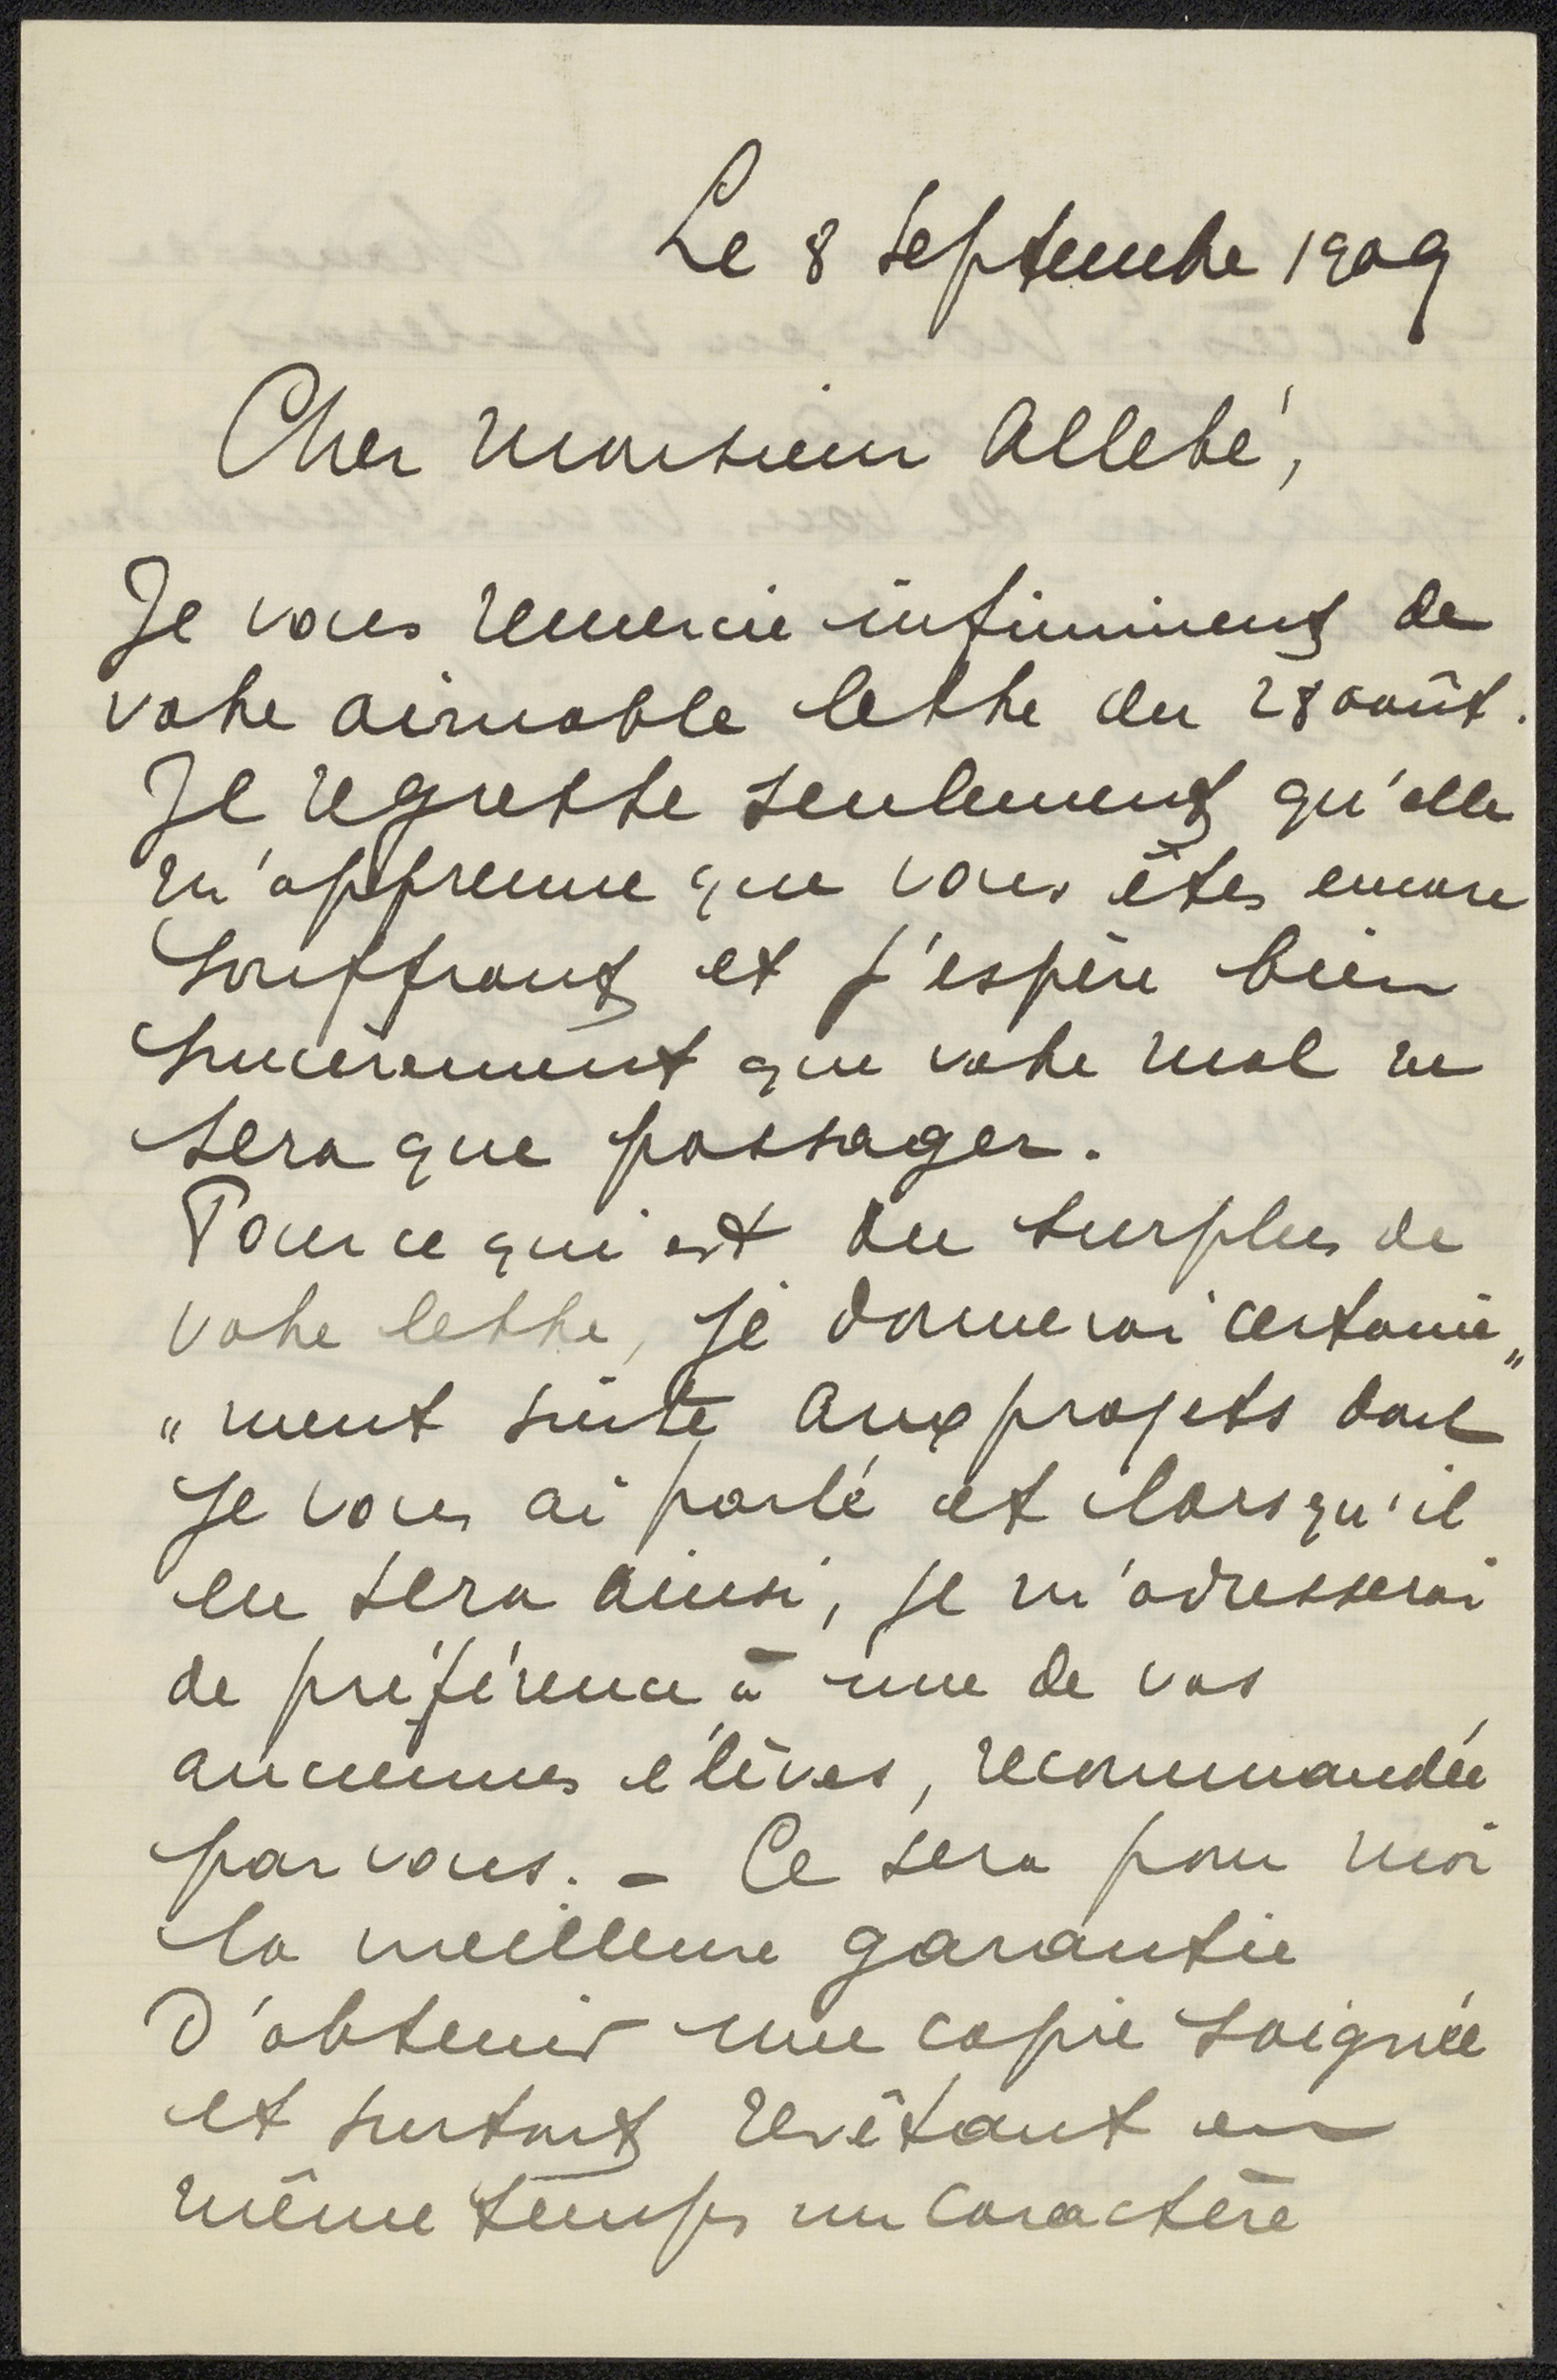 Le 8 Septembre 1909
Cher Monsieur Allebé,
Je vous remercie infiniment de
votre aimable lettre du 28 août.
Je regrette seulement qu'elle
m'apprenne que vous êtes encore
souffrant et j'espère bien
sincèrement que votre mal ne
sera que passager.
Pour ce qui est du surplus de
votre lettre, je donnerai certaine„
„ment suite aux projets dont
je vous ai parlé et lorsqu'il
en sera ainsi, je m'adresserai
de préférence à une de vos
anciennes élèves, recommandée
par vous. – Ce sera pour moi
la meilleure garantie
d'obtenir une copie soignée
et surtout revêtant en
même temps un caractère